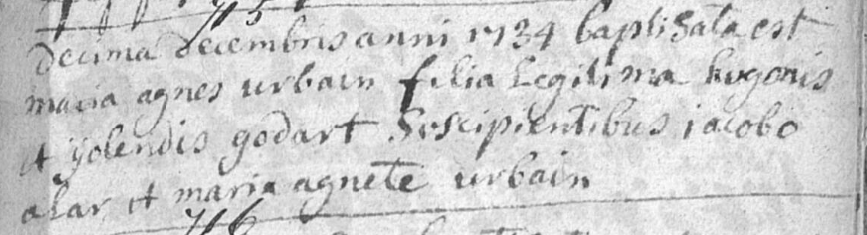 decima decembris anni 1734 baptisata est
maria agnes urbain filia Legitima hugonis
et yolendis godart Suscipientibus iacobo
alar et maria agnete urbain